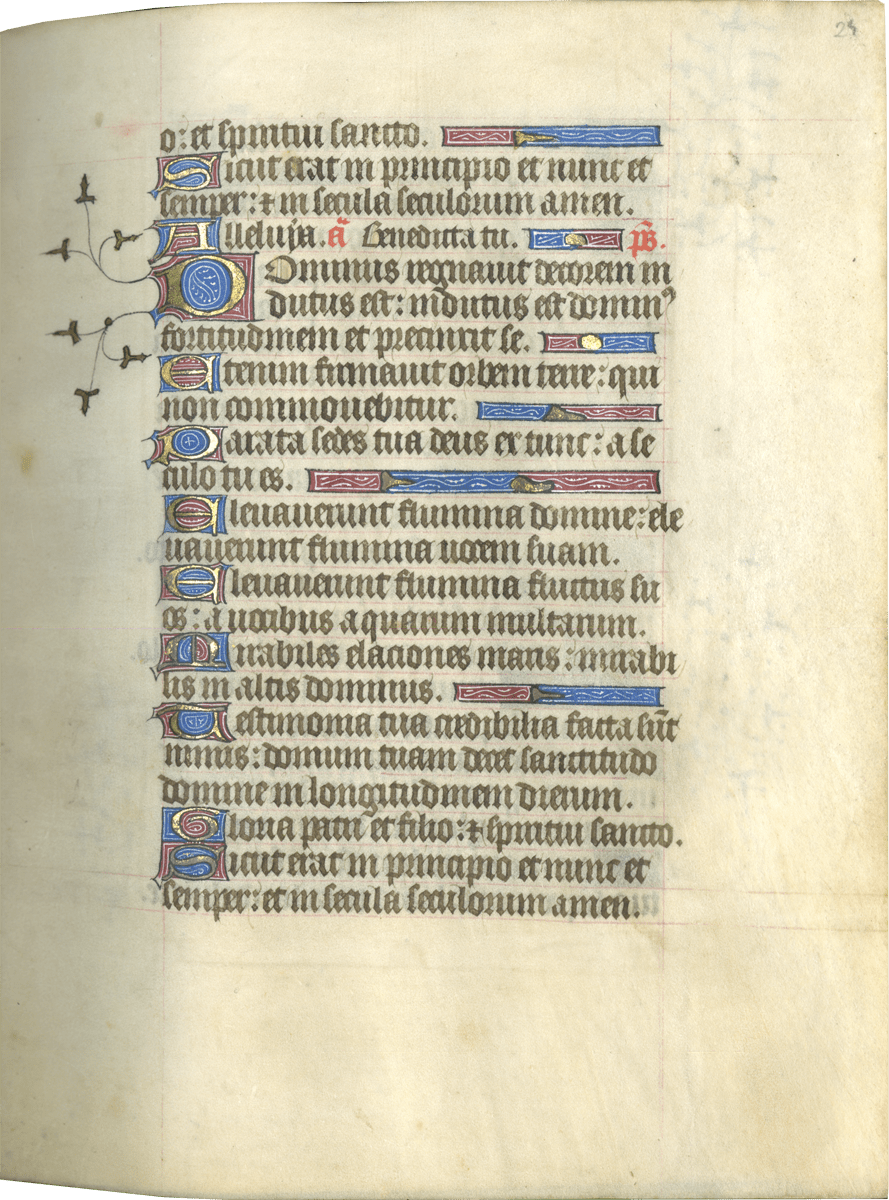 24
o: et spiritui sancto.
Sicut erat in principio et nunc et
semper: ⁊ in secula seculorum amen.
Alleluja. ã Benedicta tu. p̃s.
Dominus regnauit decorem in
dutus est: indutus est domin⁹
fortitudinem et precinxit se.
Etenim firmauit orbem terre: qui
non commouebitur.
Parata sedes tua deus ex tunc: a se
culo tu es.
Eleuauerunt flumina domine: ele
uauerunt flumina uocem suam.
Eleuauerunt flumina fluctus su
os: a uocibus aquarum multarum.
Mirabiles elaciones maris: mirabi
lis in altis dominus.
Testimonia tua credibilia facta sũt
nimis: domum tuam decet sanctitudo
domine in longitudinem dierum.
Gloria patri et filio: ⁊ spiritui sancto.
Sicut erat in principio et nunc et
semper: et in secula seculorum amen.